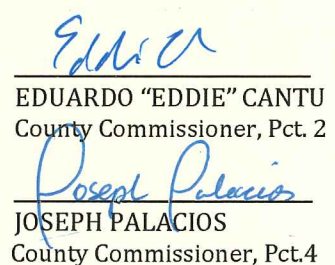 Eddi C
EDUARDO “EDDIE” CANTU
County Commissioner, Pct. 2
Joseph Palacios
JOSEPH PALACIOS
County Commissioner, Pct.4